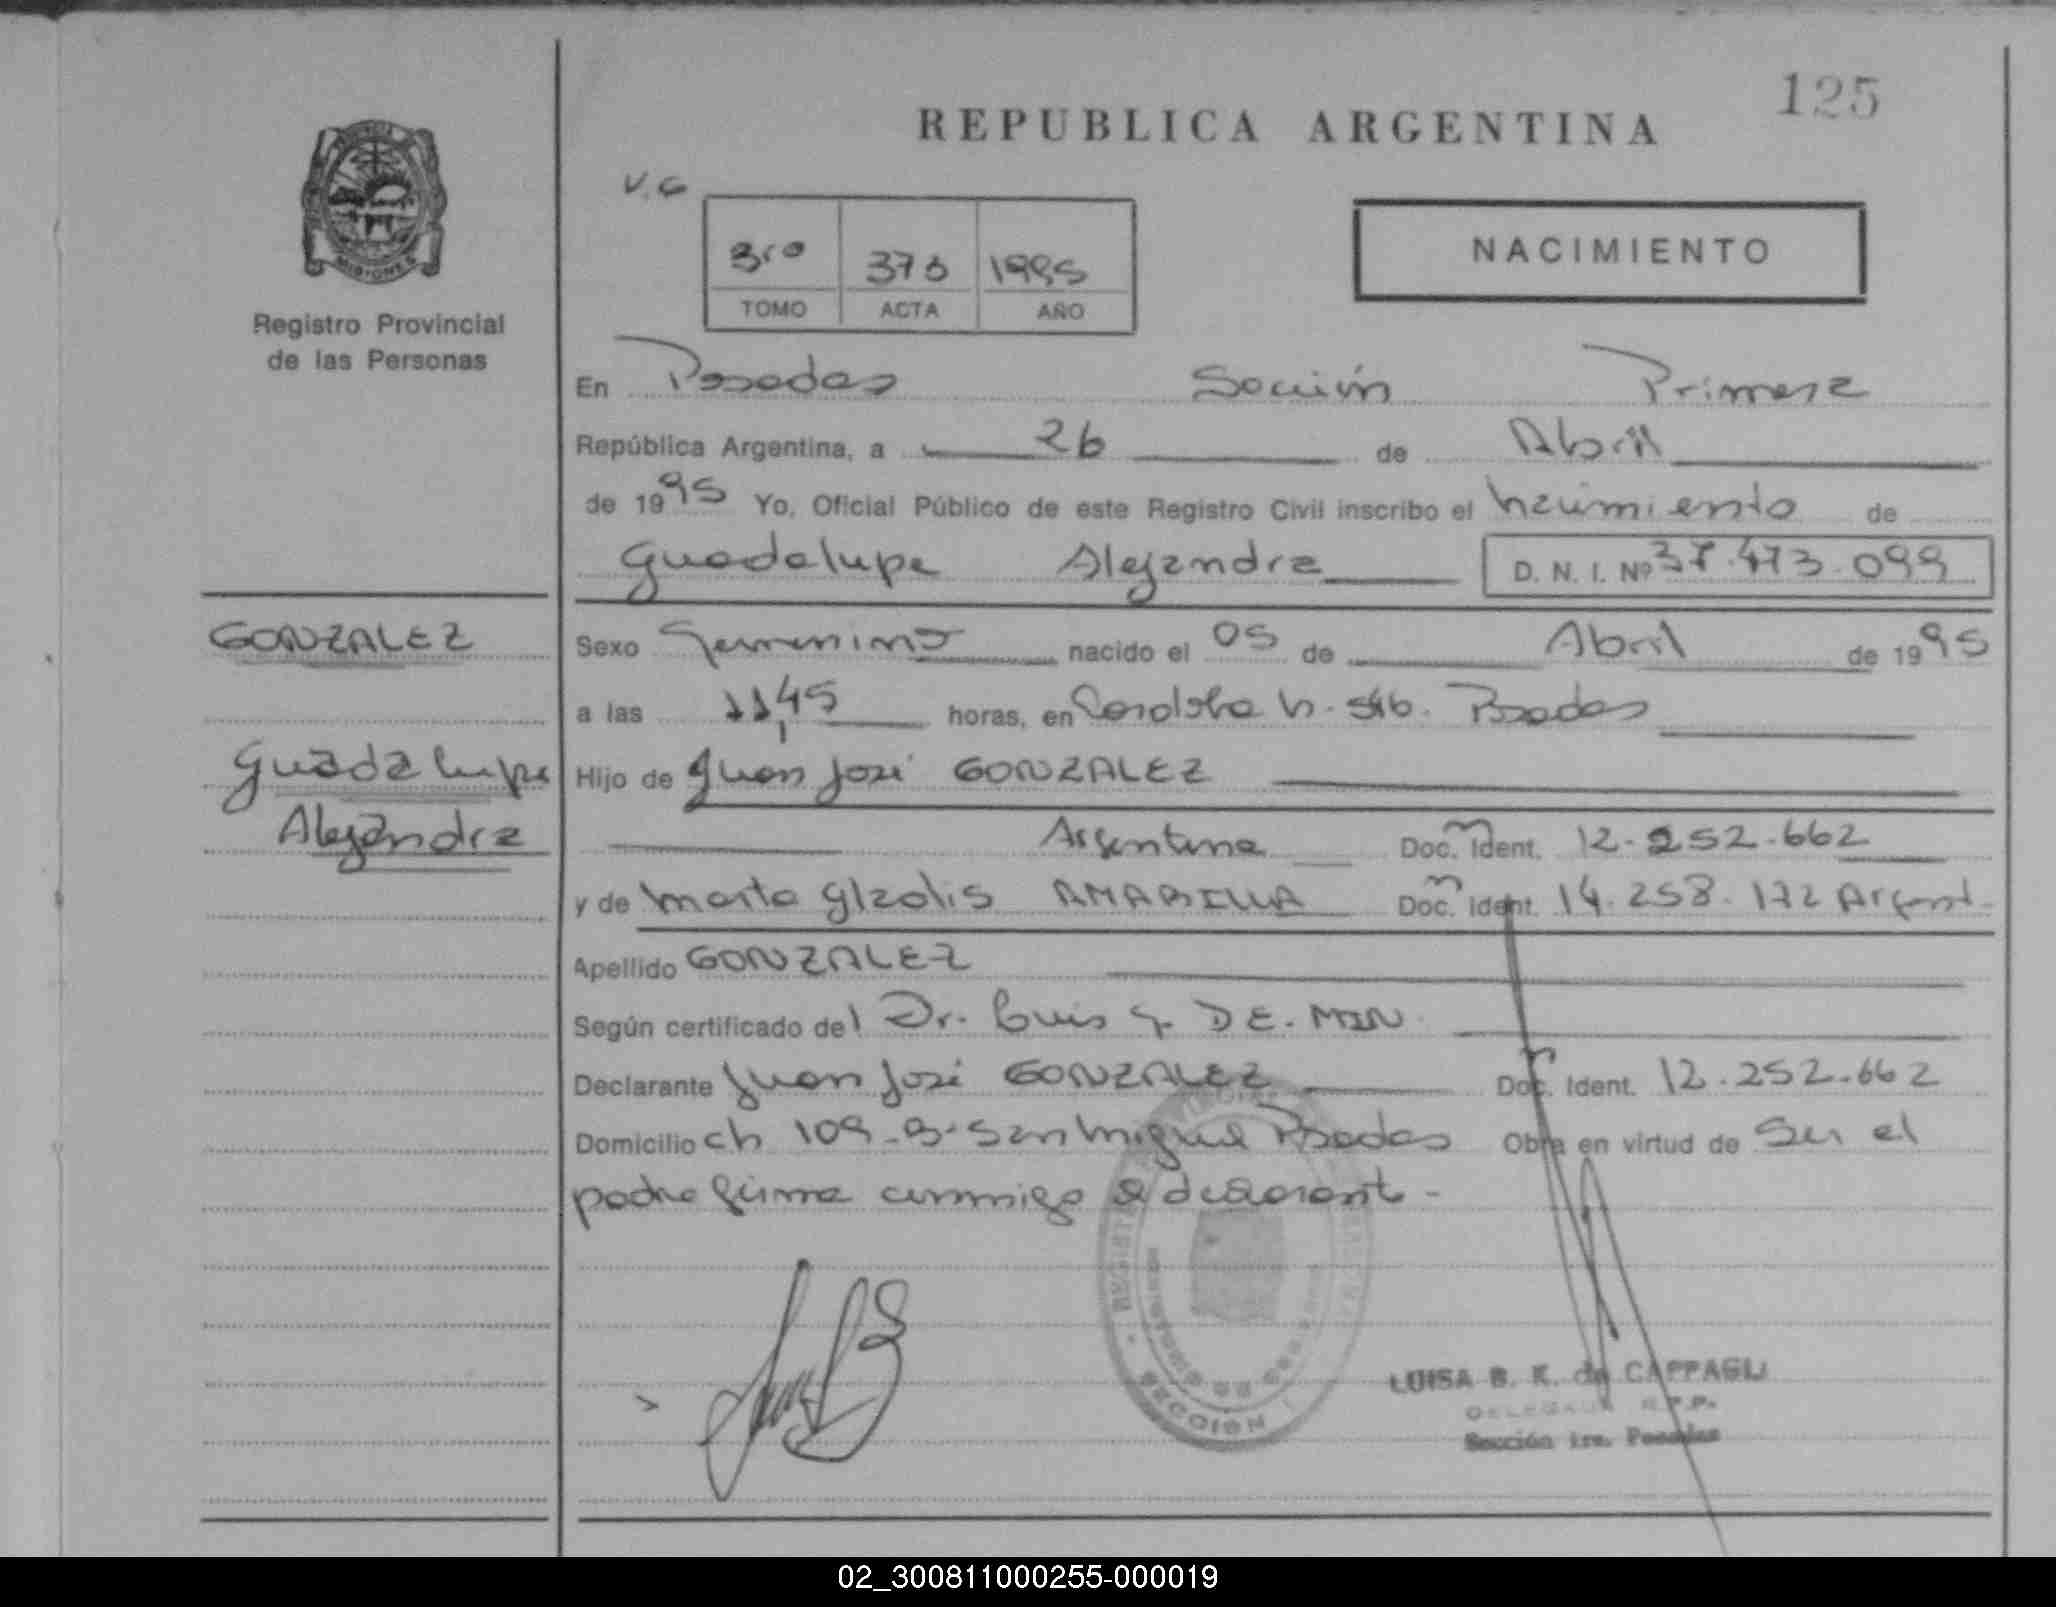 125
REPUBLICA ARGENTINA
V.G
NACIMIENTO
3ro 373 1995
TOMO ACTA AÑO
MISIONES
Registro Provincial
de las Personas
En Posadas Sección Primera
República Argentina, a 26 de Abril
de 1995 Yo, Oficial Público de este Registro Civil inscribo el nacimiento de
Guadalupe Alejandra D. N. I. Nº 37.473.099
GONZALEZ
Guadalupe
Alejandra
Sexo femenino nacido el 05 de Abril de 1995
a las 11,45 horas, en Cordoba n. Posadas
Hijo de Juan José GONZALEZ
Argentina Doc. Ident. 12.252.662
y de Marta Gladis AMARILLA Doc. Ident. 14.258.172 Argent.
Apellido GONZALEZ
Según certificado del Dr. Luis DE. MIN.
Declarante Juan José GONZALEZ Doc. Ident. 12.252.662
Domicilio ch 109-B-San Miguel Posadas Obra en virtud de Ser el
padre firma conmigo el declarante-
SECCIÓN
LUISA B. K. de CAPPAGLI
DELEGADA R.P.P.
Sección 1ra. Posadas
02_300811000255-000019